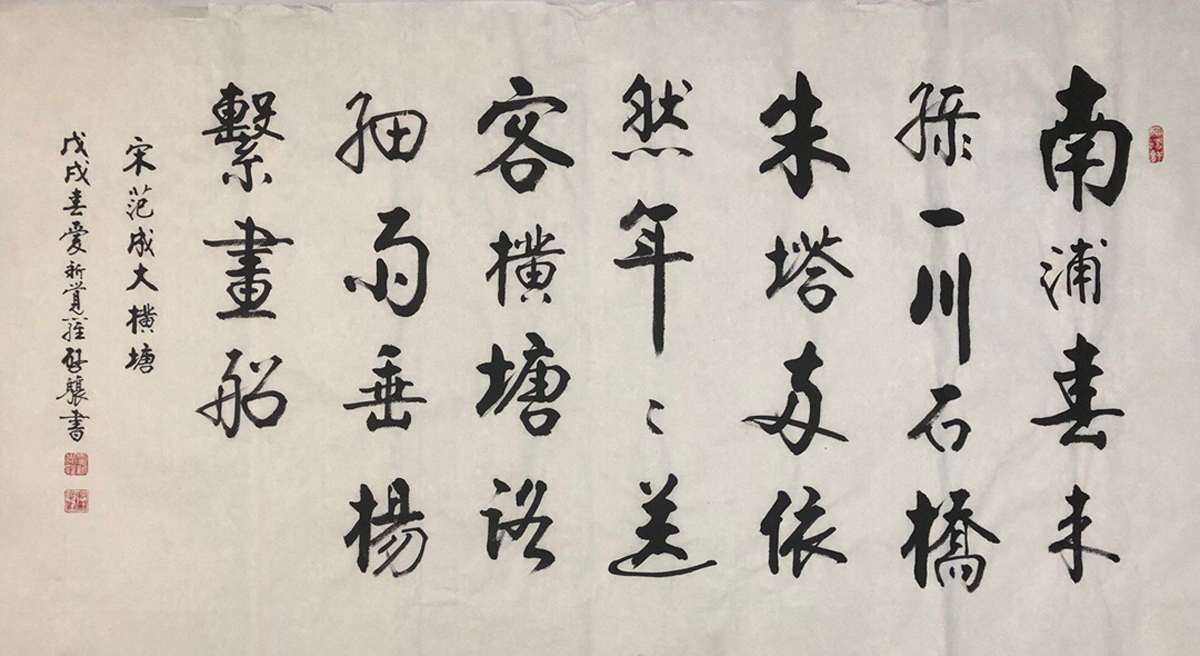 南浦春来
緑一川石橋
朱塔两依
然年〻送
客横塘路
細雨垂楊
繫畫船
宋范成大横塘
戊戌春愛新覺羅啓驤書